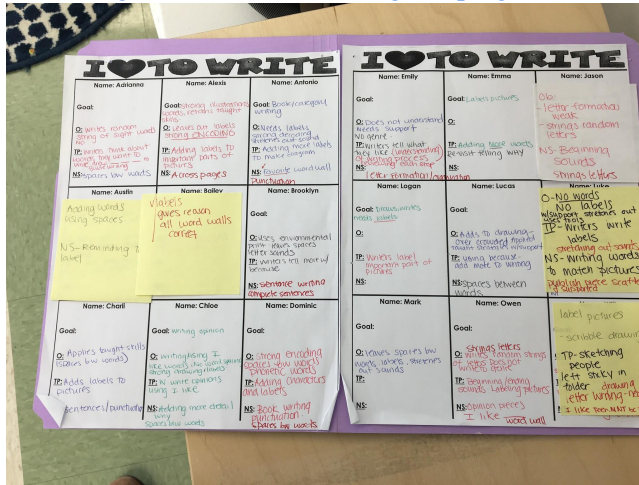 I ♥ TO WRITE
Name: Adrianna
Goal:
O: writes random
string of sight words
no
TP: Writers think about
words they want to
NS: spaces b/w words
Name: Alexis
Goal: strong illustrations
words, remains taught
skills
O: Leaves out labels
strong ENCODING
TP: Adding labels to
important parts of
pictures
NS: Across pages
Name: Antonio
Goal: Book/category
writing
O: Needs labels
strong decoding
stretches out sound
TP: Adding more labels
to make diagram
NS: Favorite word wall
Punctuation
Name: Austin
Adding words
using spaces
NS- Reminding to
label
Name: Bailey
✓labels
gives reason
all word walls
correct
Name: Brooklyn
Goal:
O: uses environmental
print, leaves spaces
letter sounds
TP: Writers tell more w/
because
NS: sentence writing
complete sentences
Name: Charli
Goal:
O: Applies taught skills
(spaces b/w words)
TP: Adds labels to
pictures
sentences/punctuation
Name: Chloe
Goal: writing opinion
O: Writing using I
like words, use word spaces
strong drawing/labels
TP: N wrote opinions
using I like
NS: Adding more detail
why
spaces b/w words
Name: Dominic
Goal:
O: strong encoding
spaces b/w words
phonetic words
TP: Adding characters
and labels
NS: Book writing
punctuation
spaces b/w words
I ♥ TO WRITE
Name: Emily
Goal:
O: Does not understand
needs support
No genre
TP: Writers tell what
they like (understanding)
of writing process
reviewing each step
letter formation/organization
Name: Emma
Goal: Labels pictures
O:
TP: Adding more words
revisit telling way
NS:
Name: Jason
Ob:
- letter formation
weak
- strings random
letters
NS- Beginning
sounds
strings letters
Name: Logan
Goal: Draws, writes
needs labels
O:
TP: Writers label
important part of
pictures
NS:
Name: Lucas
Goal:
O: Adds to drawing-
over crowded
TP: using because
add more to writing
NS: spaces between
words
Name: Luke
O- No words
No labels
w/support stretches out
uses tools
TP- Writers write
labels
stretching out sounds
NS- Writing words
to match pictures
publish piece
Name: Mark
Goal:
O: leaves spaces b/w
words, labels, stretches
out sounds
TP:
NS:
Name: Owen
Goal:
strings letters
O: Writes random strings
of letters Does not
write to genre
TP: Beginning/ending
sounds Labeling pictures
NS: Opinion pieces
I like word wall
label pictures
- scribble drawing
TP- sketching
people
left sticky in
folder
letter writing